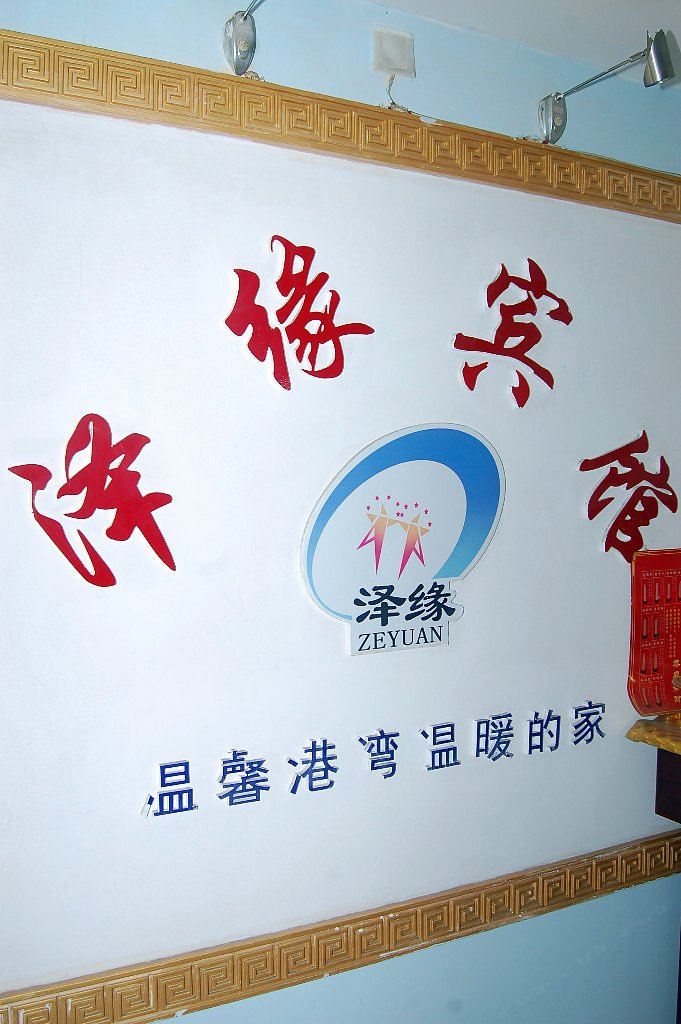 泽缘宾馆
泽缘
ZEYUAN
温馨港湾温暖的家